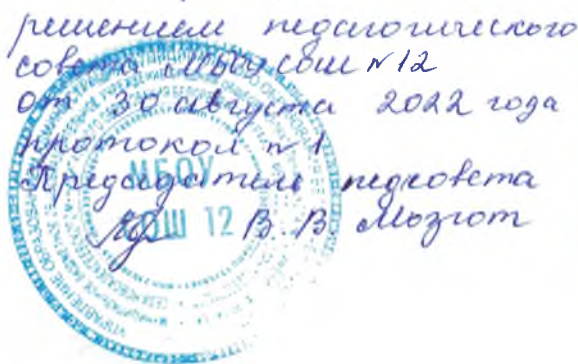 решением педагогического
совета МБОУ СОШ №12
от 30 августа 2022 года
протокол №1
Председатель педсовета
В. В. Мозгот
МБОУ
СОШ 12